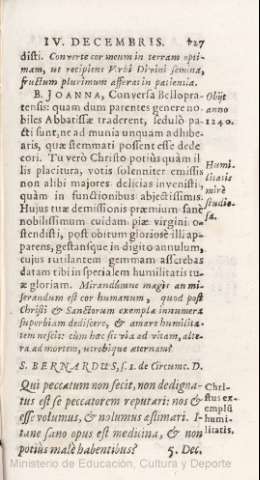 IV. DECEMBRIS. 427
disti. Converte cor meum in terram opti-
mam, ut recipiens Verbi Divini semina,
fructum plurimum afferat in patientia.
B. JOANNA, Conversa Bellopra-
tensis: quam dum parentes genere no-
biles Abbatissæ traderent, sedulò pa-
cti sunt, ne ad munia unquam adhibe-
aris, quæ stemmati possent esse dede
cori. Tu verò Christo potiùs quàm il
lis placitura, votis solenniter emissis
non alibi majores delicias invenisti,
quàm in functionibus abjectissimis.
Hujus tuæ demissionis præmium sanè
nobilissimum cuidam piæ virgini o-
stendisti, post obitum gloriosè illi ap-
parens, gestansque in digito annulum,
cujus rutilantem gemmam asserebas
datam tibi in specialem humilitatis tu-
æ gloriam. Mirandumne magis an mi-
serandum est cor humanum, quod post
Christi & Sanctorum exempla innumera
superbiam dediscere, & amare humilita-
tem nescit: cùm hæc sit via ad vitam, alte-
ra ad mortem, utrobique æternam?
S. BERNARDUS, s. 1. de Circumc. D.
Qui peccatum non fecit, non dedigna-
tus est se peccatorem reputari: nos &
esse volumus, & nolumus æstimari. I-
tane sano opus est medicina, & non
potiùs malè habentibus? 5. Dec.
Obijt
anno
1240.
Humi-
litatis
mirè
studio-
sa.
Chri-
stus ex-
emplū
humi-
litatis.
Ministerio de Educación, Cultura y Deporte